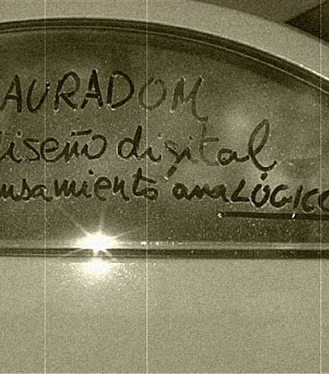 AURADOM
diseño digital
ensamiento anaLÓGICO